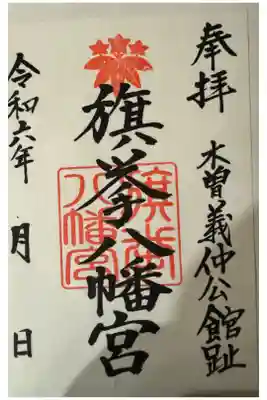 奉拝
木曽義仲公館趾
旗挙八幡宮
旗挙八幡宮
令和六年　月　日